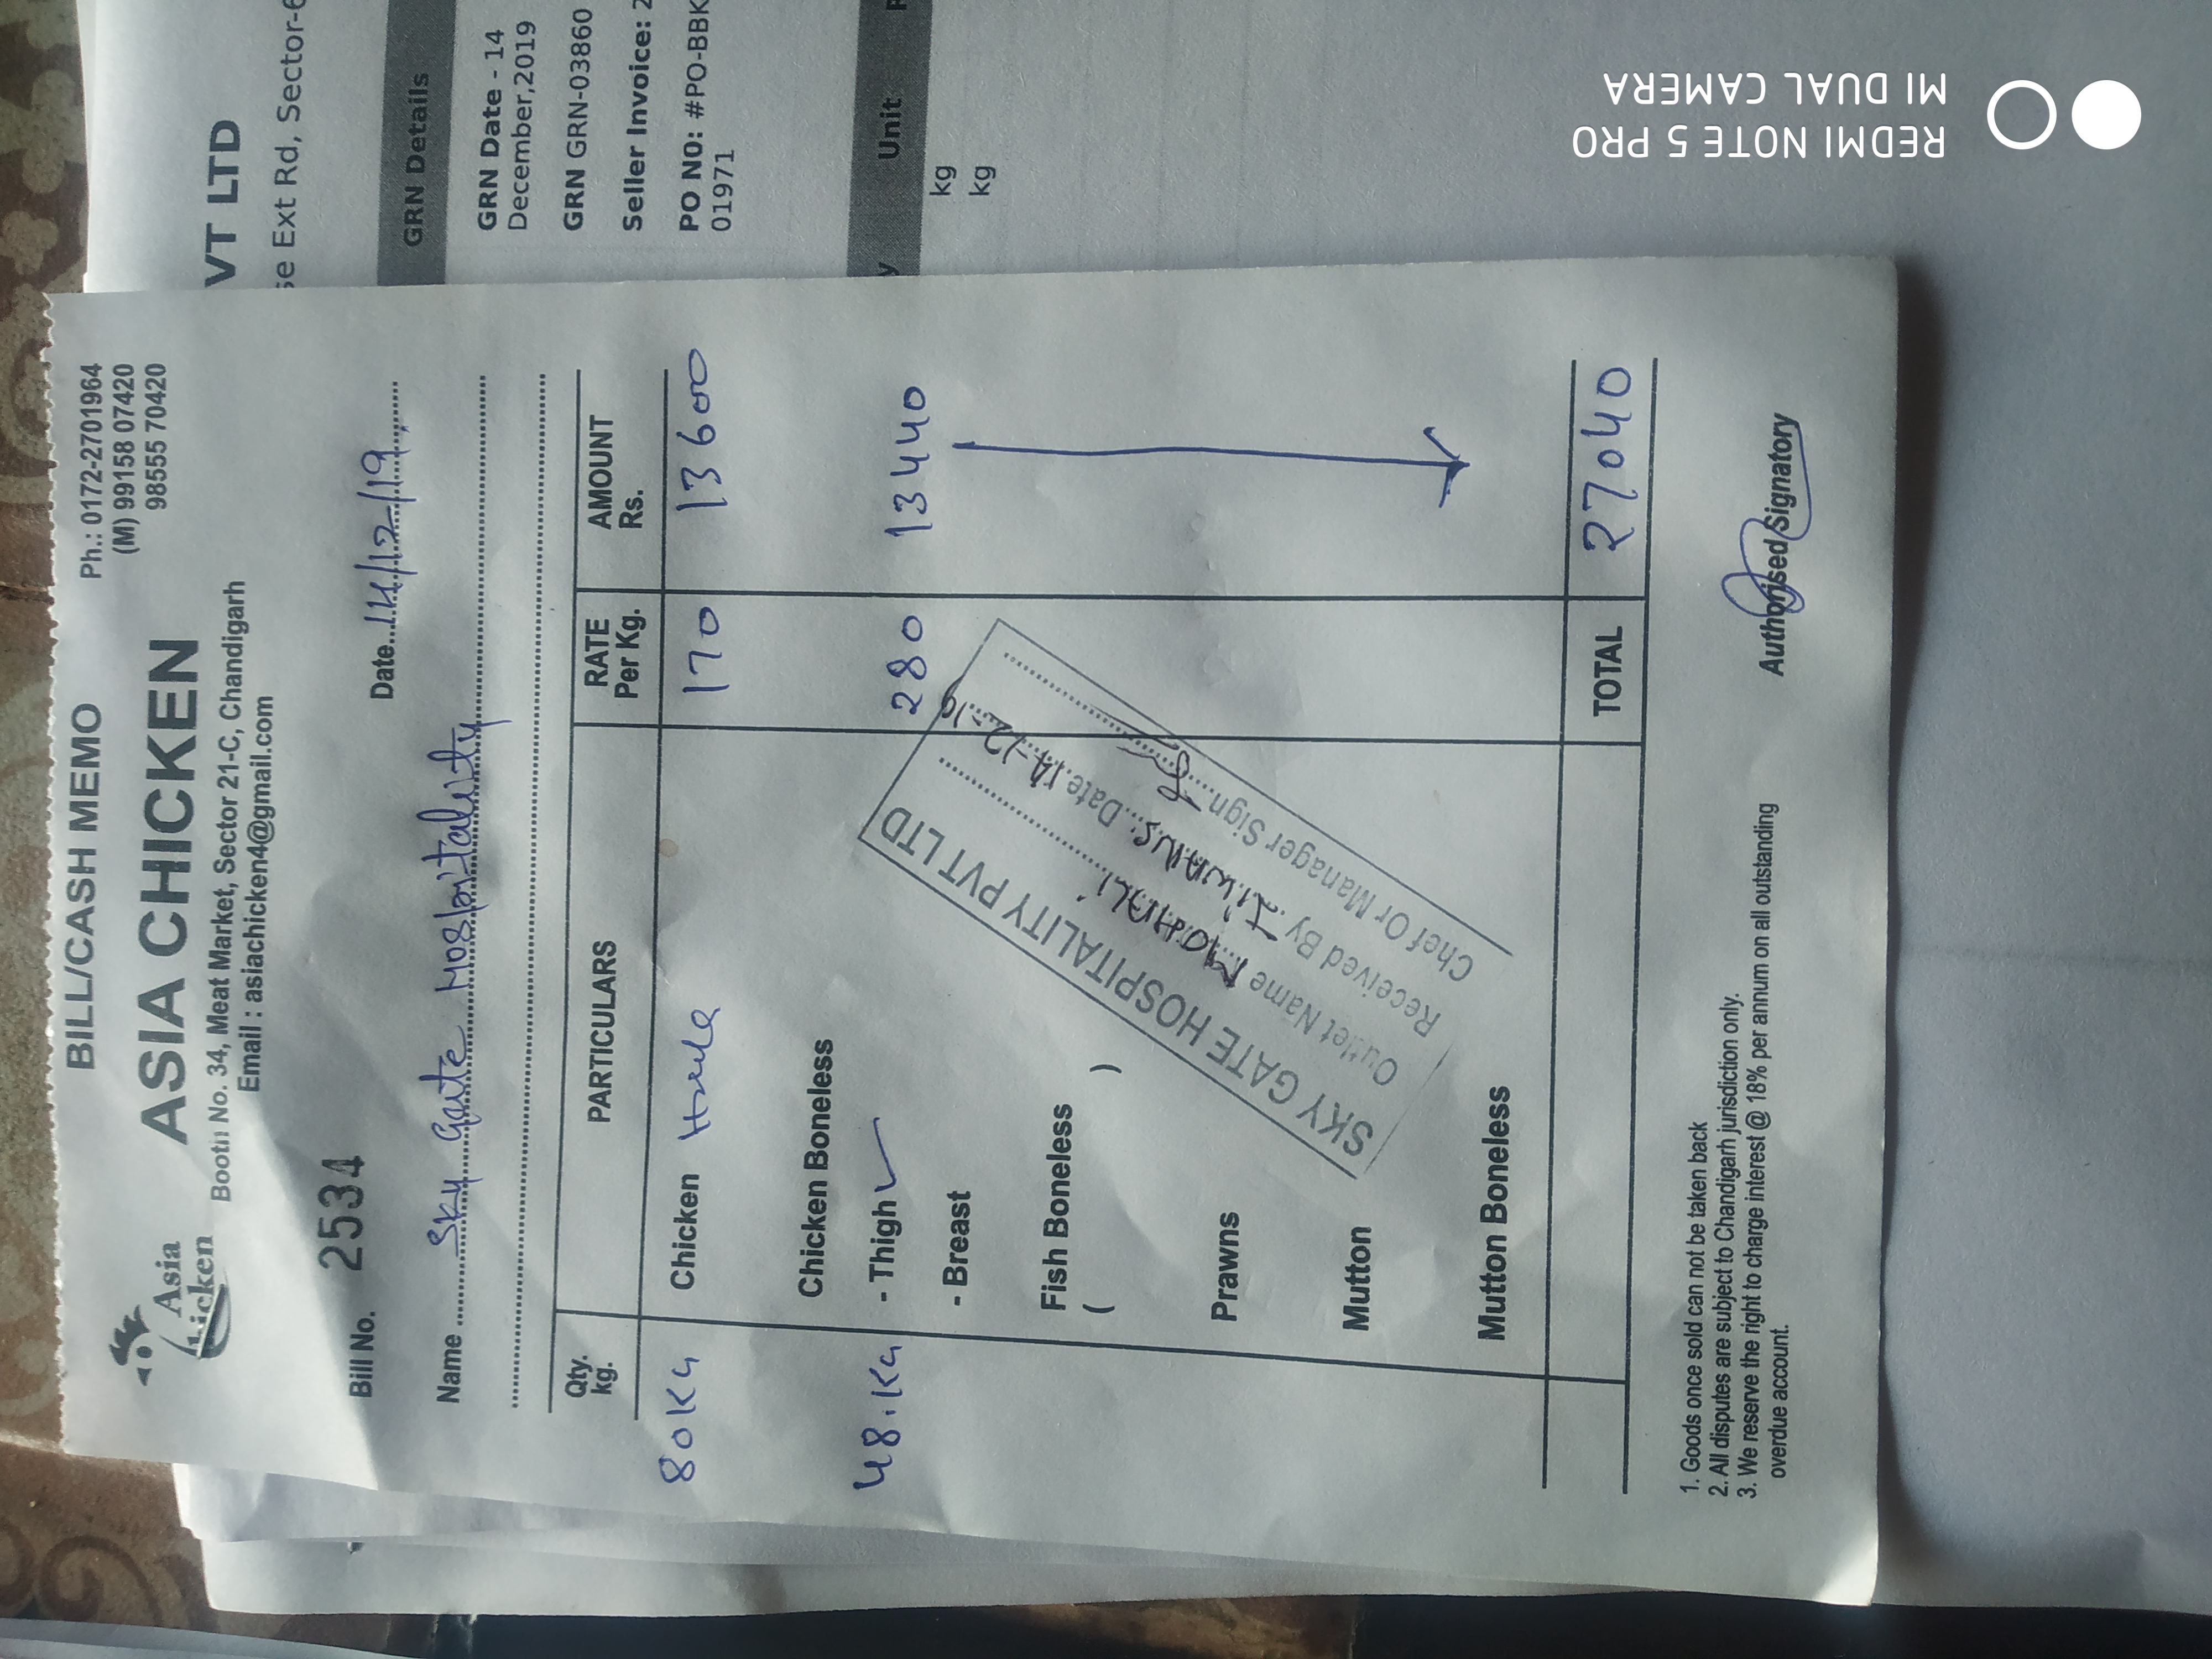 BILL/CASH MEMO
Ph.: 0172-2701964
(M) 99158 07420
98555 70420
Asia
Chicken
ASIA CHICKEN
Booth No. 34, Meat Market, Sector 21-C, Chandigarh
Email : asiachicken4@gmail.com
Bill No. 2534
Date..14/12/19
Name Sky Gate Hospitality
Qty. kg. PARTICULARS RATE Per Kg. AMOUNT Rs.
80Kg Chicken 170 13600
Chicken Boneless
48.Kg - Thigh 280 13440
- Breast
Fish Boneless
( )
Prawns
Mutton
Mutton Boneless
TOTAL 27040
SKY GATE HOSPITALITY PVT LTD
Outlet Name MOHALI
Received By Date 14-12-19
Chef Or Manager Sign
1. Goods once sold can not be taken back
2. All disputes are subject to Chandigarh jurisdiction only.
3. We reserve the right to charge interest @ 18% per annum on all outstanding
overdue account.
Authorised Signatory
VT LTD
se Ext Rd, Sector-6
GRN Details
GRN Date - 14
December,2019
GRN GRN-03860
Seller Invoice: 2
PO N0: #PO-BBK
01971
y Unit
kg
kg
REDMI NOTE 5 PRO
MI DUAL CAMERA